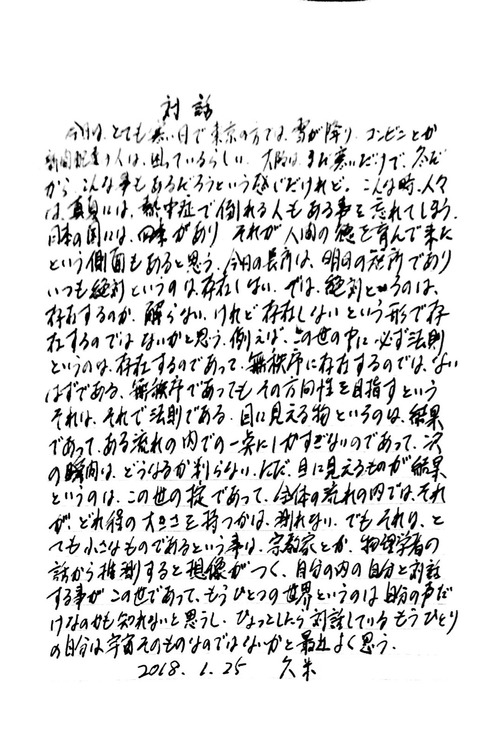 対話
今日は、とても寒い日で東京の方では、雪が降り、コンビニとか
新聞配達の人は、困っているらしい。大阪は、まだ寒いだけで、冬だ
から、こんな事もあるだろうという感じだけれど。こんな時、人々
は、真夏には、熱中症で倒れる人もある事を忘れてしまう。
日本の国には、四季があり それが人間の徳を育んで来た
という側面もあると思う。今日の長所は、明日の短所であり
いつも絶対というのは、存在しない。では、絶対というのは、
存在するのか、解らない、けれど存在しないという形で存
在するのではないかと思う。例えば、この世の中に必ず法則
というのは、存在するのであって、無秩序に存在するのでは、ない
はずである、無秩序であってもその方向性を目指すという
それは、それで法則である。目に見える物というのは、結果
であって、ある流れの内での一突にしかすぎないのであって、次
の瞬間は、どうなるか判らない、ただ、目に見えるものが結果
というのは、この世の掟であって、全体の流れの内では、それ
が どれ程の大きさを持つかは、測れない。でもそれは、と
ても小さなものであるという事は、宗教家とか、物理学者の
話から推測すると想像がつく、自分の内の自分と対話
する事がこの世であって、もうひとつの世界というのは自分の声だ
けなのかも知れないと思うし、ひょっとしたら対話しているもうひとり
の自分は宇宙そのものなのではないかと最近よく思う。
2018. 1. 25 久朱